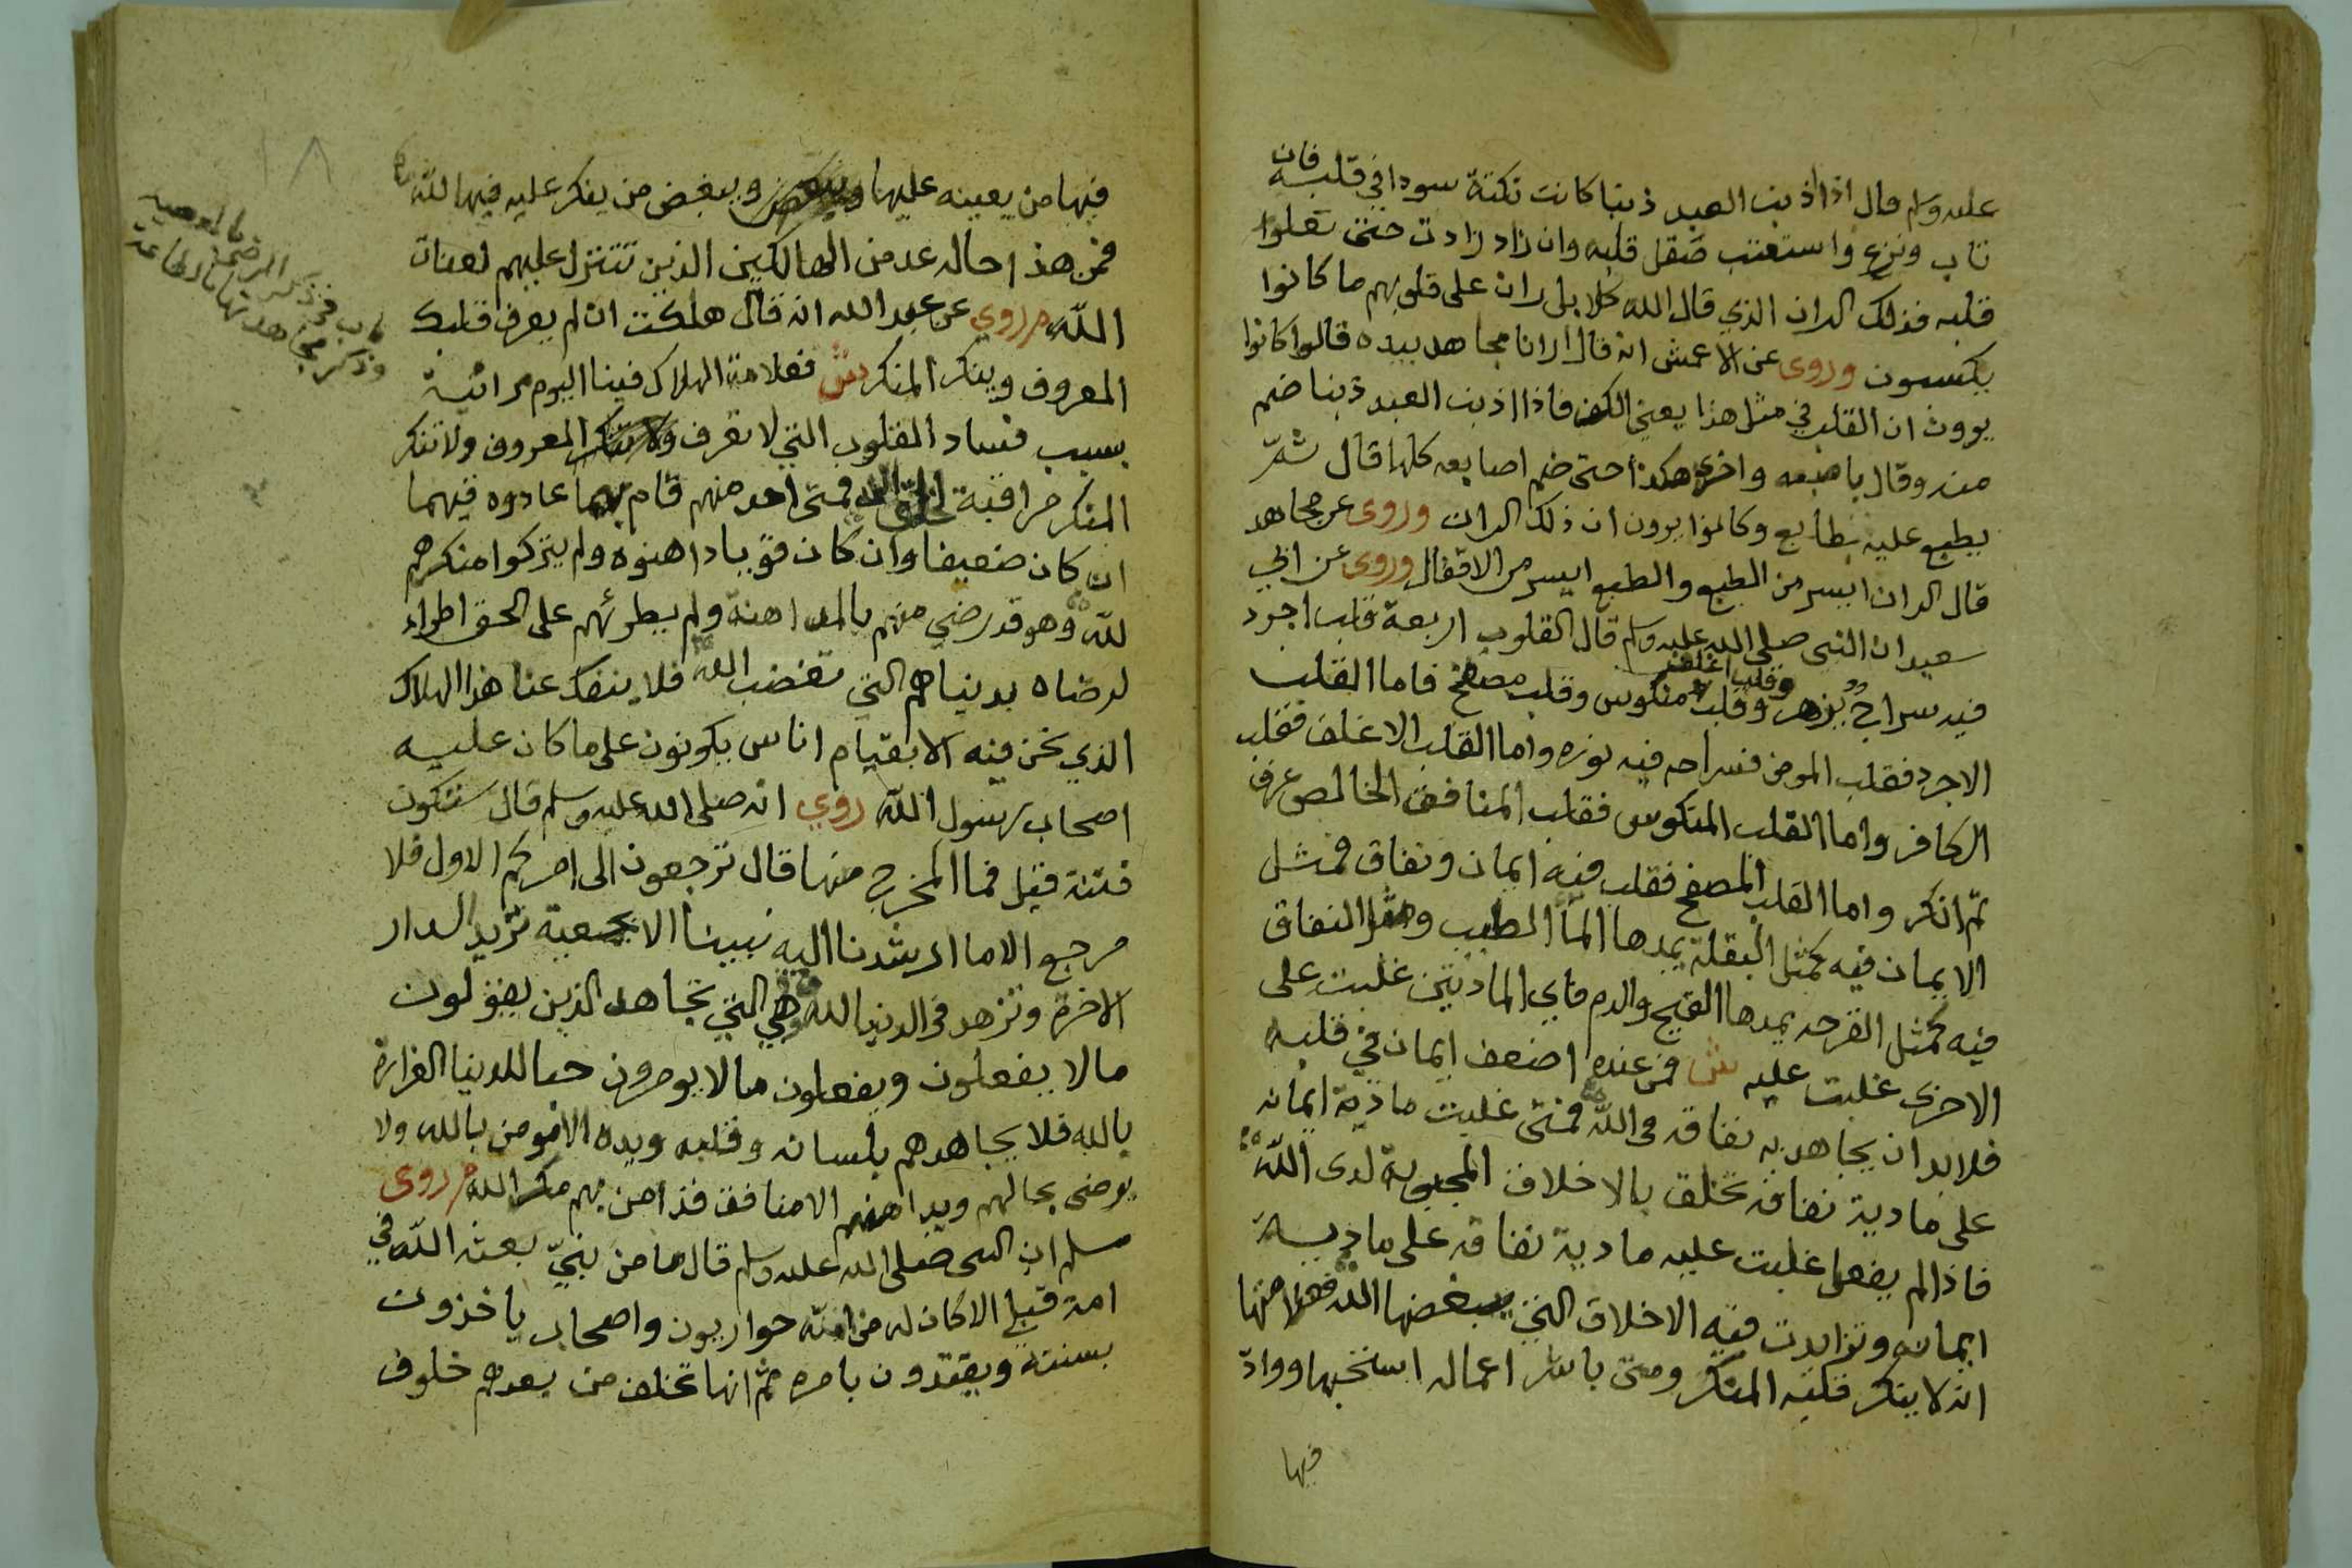 عليه وسلم قال اذا اذنب العبد ذنبا كانت نكتة سودا في قلبه فان
تاب ونزع واستعتب صقل قلبه وان زاد زادت حتى تعلوا
قلبه فذلك الران الذي قال الله كلا بل ران على قلوبهم ما كانوا
يكسبون وروى عن الاعمش انه قال ارانا مجاهد بيده قالوا كانوا
يرون ان القلب في مثل هذا يعني الكف فاذا اذنب العبد ذنبا ضم
منه وقال باصبعه واخرى هكذا حتى ضم اصابعه كلها قال ثم
يطبع عليه بطابع وكانوا يرون ان ذلك الران وروى عن مجاهد
قال الران ايسر من الطبع والطبع ايسر من الاقفال وروى عن ابي
سعيد ان النبى صلى الله عليه وسلم قال القلوب اربعة قلب اجرد
فيه سراج يزهر وقلب اغلف وقلب منكوس وقلب مصفح فاما القلب
الاجرد فقلب المومن فسراجه فيه نوره واما القلب الاغلف فقلب
الكافر واما القلب المنكوس فقلب المنافق الخالص عرف
ثم انكر واما القلب المصفح فقلب فيه ايمان ونفاق فمثل
الايمان فيه كمثل البقلة يمدها الما الطيب ومثل النفاق
فيه كمثل القرحه يمدها القيح والدم فاي المادتين غلبت على
الاخرى غلبت عليه ش فمن عنده اضعف ايمان في قلبه
فلابد ان يجاهد به نفاقه في الله فمتى غلبت مادية ايمانه
على مادية نفاقه تخلق بالاخلاق المحبوبة لدى الله
فاذا لم يفعل غلبت عليه مادية نفاقه على مادية
ايمانه وتزايدت فيه الاخلاق التي يبغضها الله منها
انه لا ينكر قلبه المنكر ومتى باشر اعماله استخبها ووادّ
فيها
فيها من يعينه عليها ويبغض من ينكر عليه فيها لله
فمن هذا حاله عد من الهالكين الذين تتنزل عليهم لعنات
الله م روي عن عبد الله انه قال هلكت ان لم يعرف قلبك
المعروف وينكر المنكر ش فعلامة الهلاك فينا اليوم مرائية
بسبب فساد القلوب التي لا تعرف المعروف ولا تنكر
المنكر مراقبة فمتى احد منهم قام بهما عادوه فيهما
ان كان ضعيفا وان كان قويا داهنوه ولم يتركوا منكرهم
لله وهو قد رضي منهم بالمداهنة ولم يطرئهم على الحق اطراء
لرضاه بدنياهم التي تغضب الله فلا ينفك عنا هذا الهلاك
الذي نحن فيه الا بقيام اناس يكونون على ما كان عليه
اصحاب رسول الله روي انه صلى الله عليه وسلم قال ستكون
فتنة فقيل فما المخرج منها قال ترجعون الى امركم الاول فلا
مرجع الاما ارشدنا اليه نبينا الا بجمعية تريد الدار
الاخرة وتزهد في الدنيا لله وهي التي تجاهد الذين يقولون
ما لا يفعلون ويفعلون ما لا يومرون حبا للدنيا الغرارة
بالله فلا يجاهدهم بلسانه وقلبه ويده الا مومن بالله ولا
يرضى بحالهم ويداهنهم الا منافق قد امن بهم مكر الله م روى
مسلم ان النبى صلى الله عليه وسلم قال ما من نبيّ بعثه الله في
امة قبلي الا كان له من امته حواريون واصحاب ياخذون
بسنته ويقتدون بامره ثم انها تخلف من بعدهم خلوف